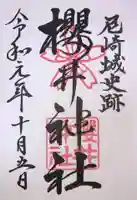 尼崎城史跡
櫻井神社
令和元年十月五日